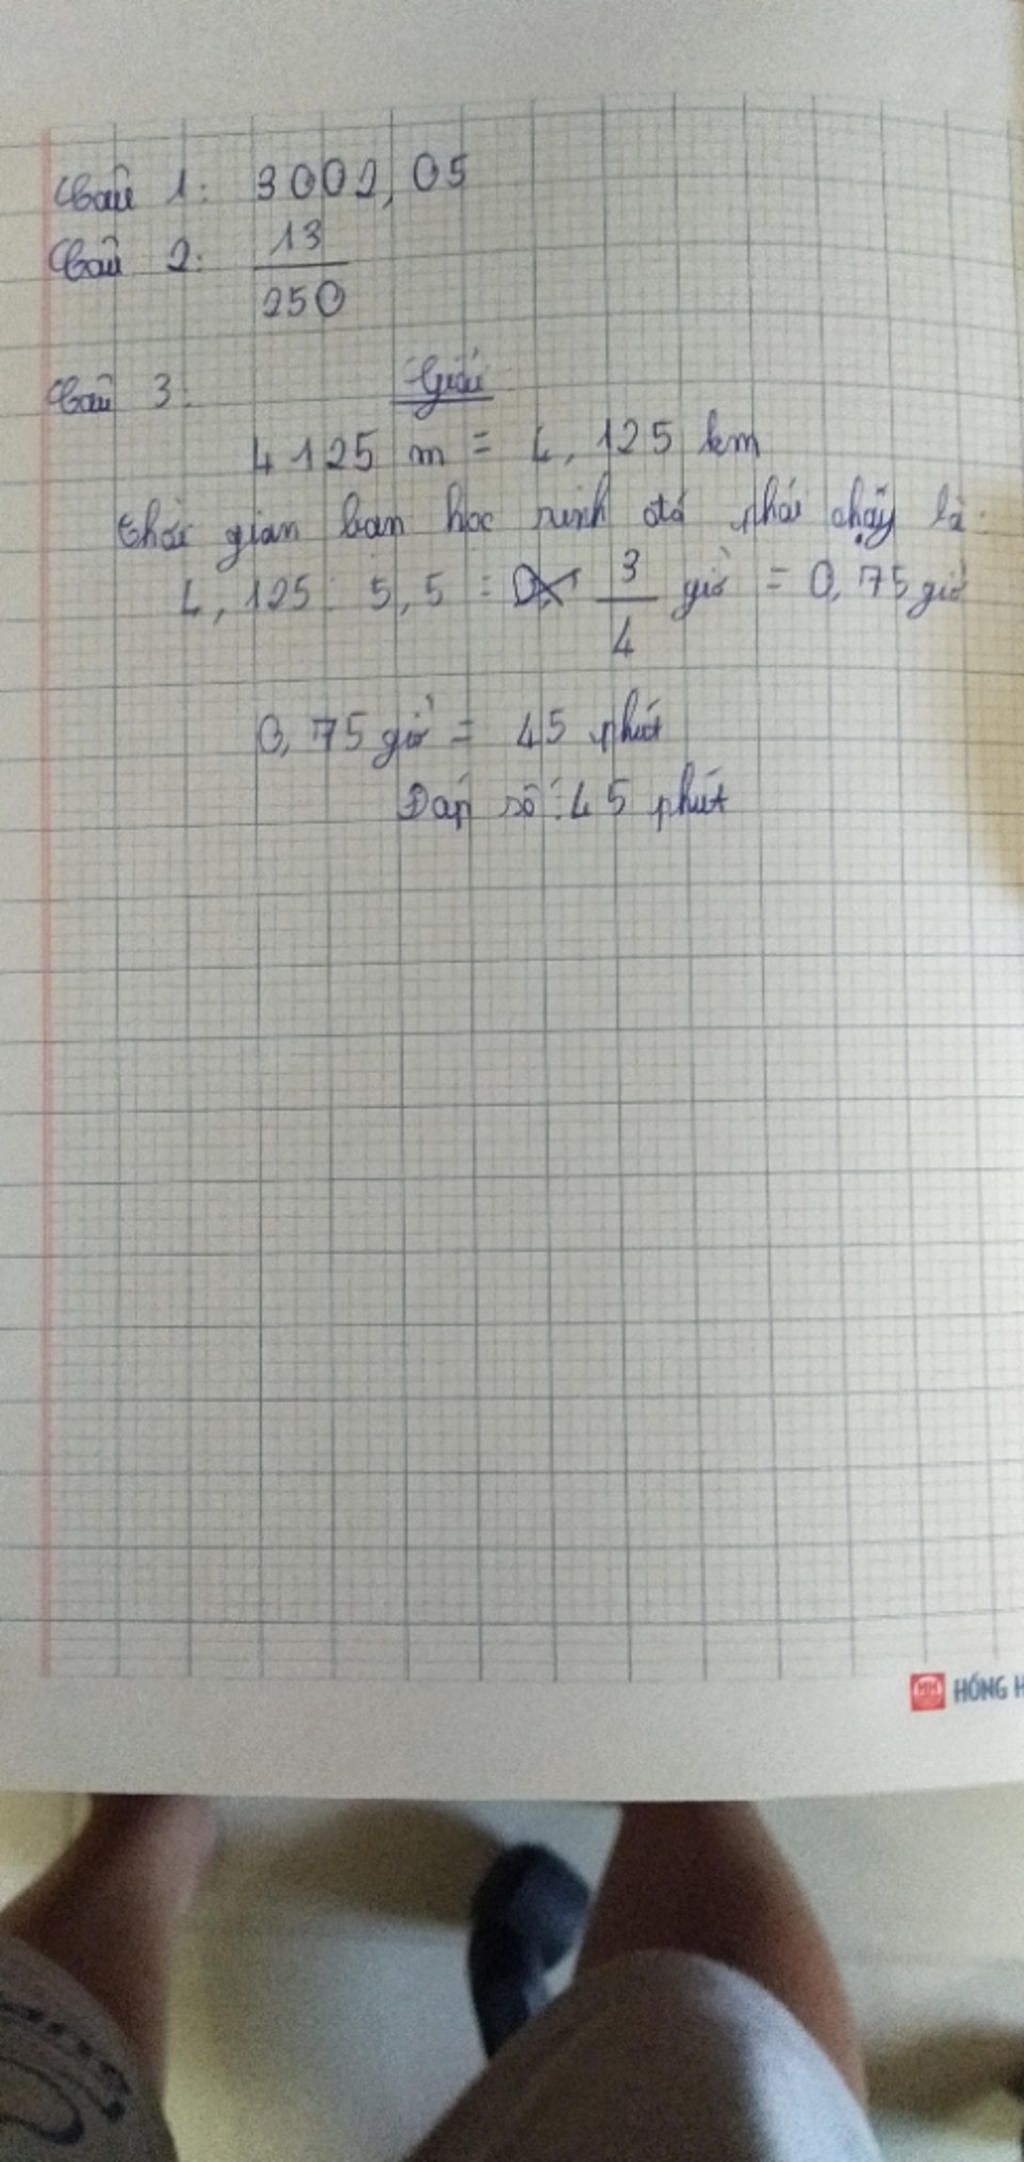 Câu 1: 3002,05
Câu 2: 13/250
Câu 3: Giải
4125 m = 4,125 km
Thời gian bạn học sinh đó phải chạy là:
4,125 : 5,5 = 3/4 giờ = 0,75 giờ
0,75 giờ = 45 phút
Đáp số: 45 phút
HỒNG H